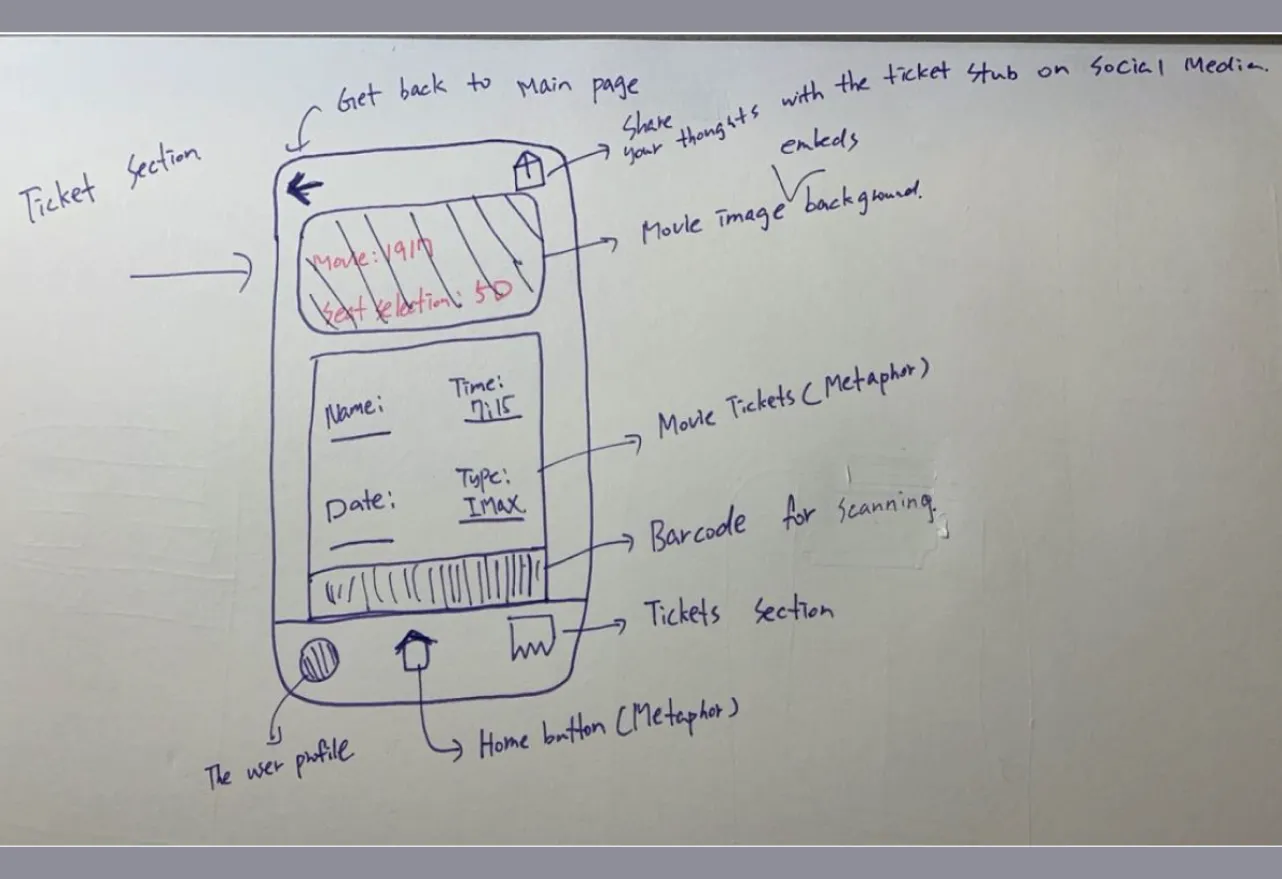 Ticket Section
Get back to Main page
Share
your thoughts with the ticket stub on Social Media.
embeds
Movie image background.
Movie: 1917
Seat Selection: 5D
Name:
Time:
7:15
Date:
Type:
IMAX
Movie Tickets (Metaphor)
Barcode for scanning.
Tickets section
Home button (Metaphor)
The user profile